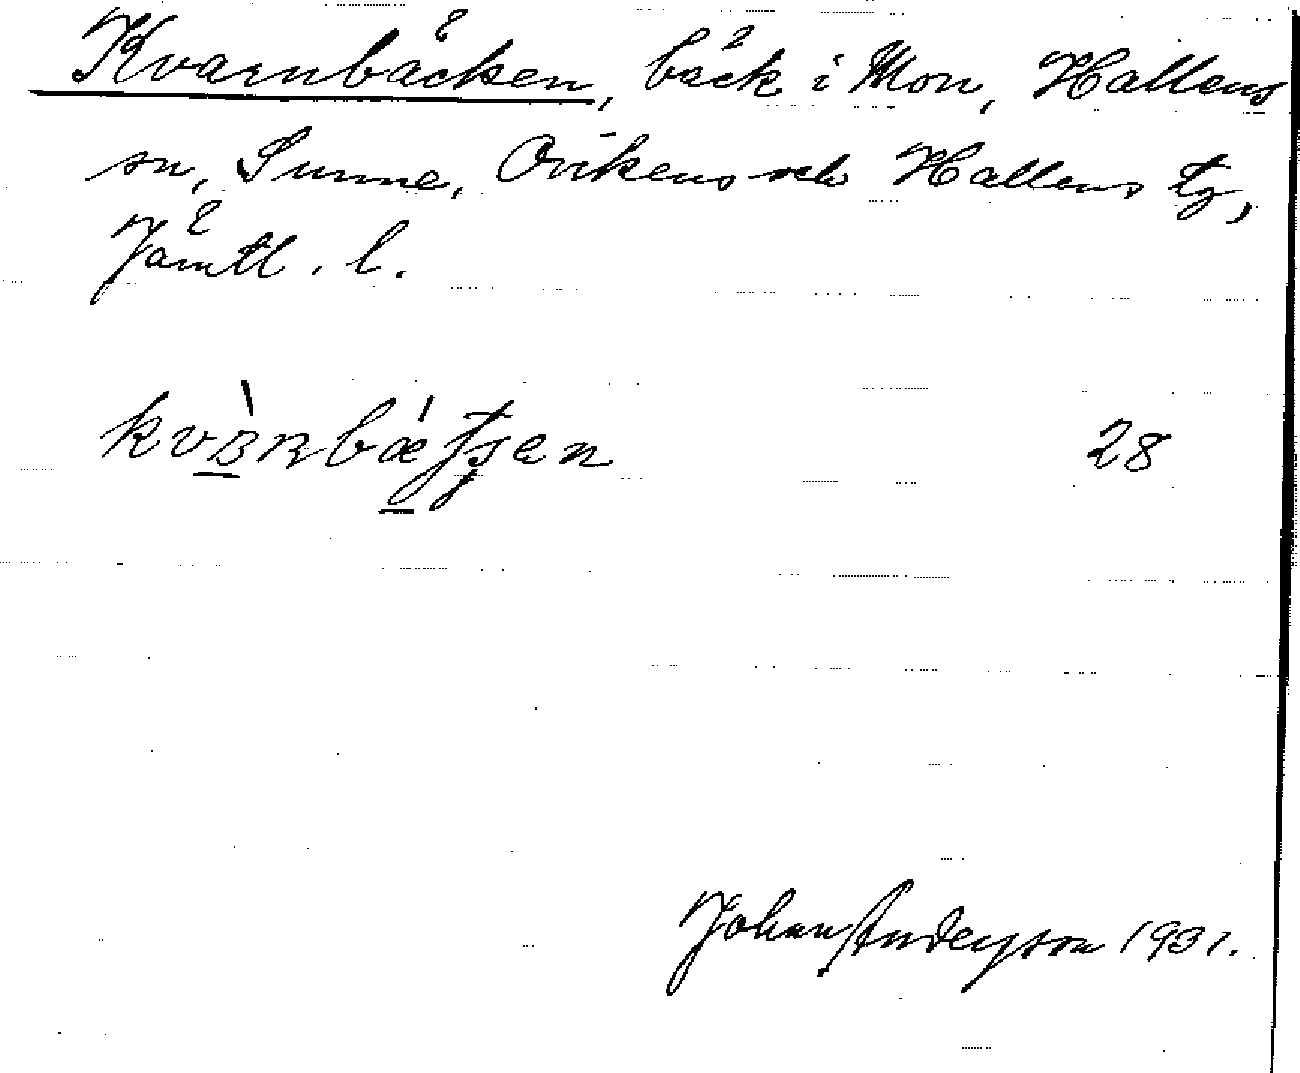 Kvarnbäcken, bäck i Mon, Hallens
sn, Sunne, Ovikens och Hallens tg,
Jämtl. l.
28
Johan Anderson 1931.